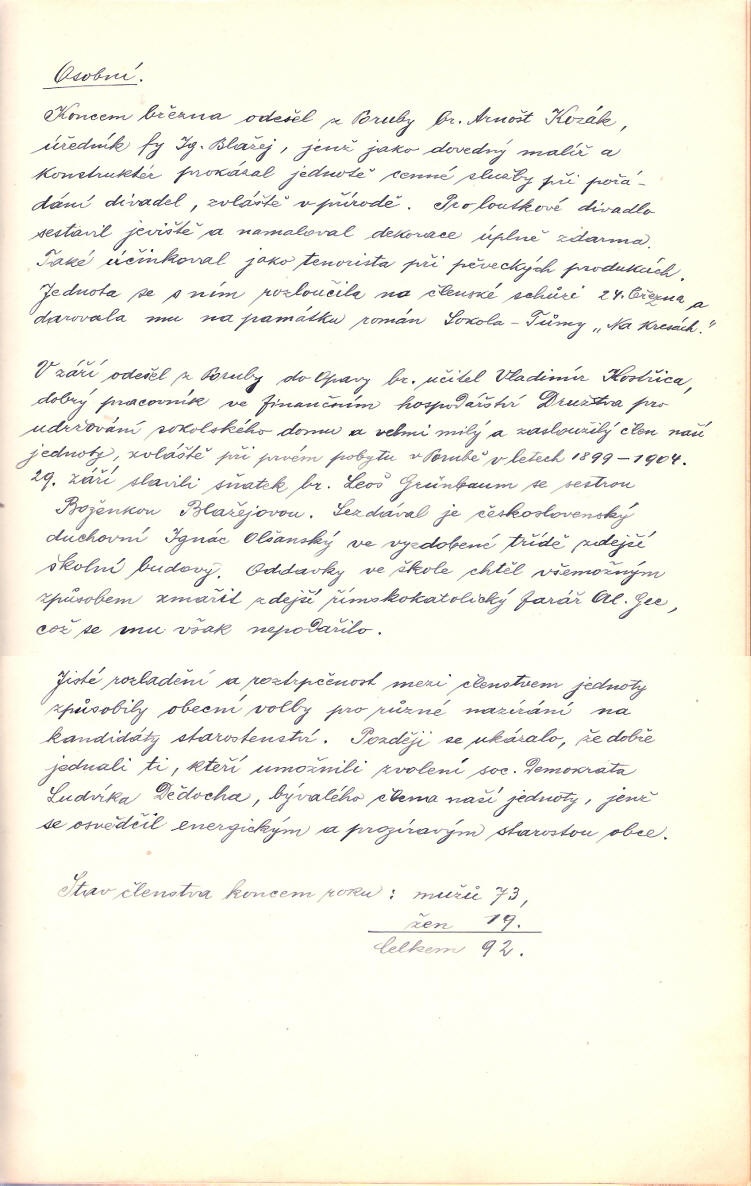 Osobní.
Koncem března odešel z Poruby br. Arnošt Kozák,
úředník fy Ig. Blažej, jenž jako dovedný malíř a
konstruktér prokázal jednotě cenné služby při pořá-
dání divadel, zvláště v přírodě. Pro loutkové divadlo
sestavil jeviště a namaloval dekorace úplně zdarma.
Také účinkoval jako tenorista při pěveckých produkcích.
Jednota se s ním rozloučila na členské schůzi 24. března a
darovala mu na památku román Sokola-Tůmy „Na kresách."
V září odešel z Poruby do Opavy br. učitel Vladimír Kostřica,
dobrý pracovník ve finančním hospodářství Družstva pro
udržování sokolského domu a velmi milý a zasloužilý člen naší
jednoty, zvláště při prvém pobytu v Porubě v letech 1899-1904.
29. září slavili sňatek br. Leoš Grünbaum se sestrou
Boženkou Blažejovou. Sezdával je československý
duchovní Ignác Olšanský ve vyzdobené třídě zdejší
školní budovy. Oddavky ve škole chtěl všemožným
způsobem zmařit zdejší římskokatolický farář Al. Gec,
což se mu však nepodařilo.
Jisté rozladění a roztrpčenost mezi členstvem jednoty
způsobily obecní volby pro různé nazírání na
kandidáty starostenství. Později se ukázalo, že dobře
jednali ti, kteří umožnili zvolení soc. demokrata
Ludvíka Dědocha, bývalého člena naší jednoty, jenž
se osvědčil energickým a prozíravým starostou obce.
Stav členstva koncem roku: mužů 73,
žen 19.
Celkem 92.